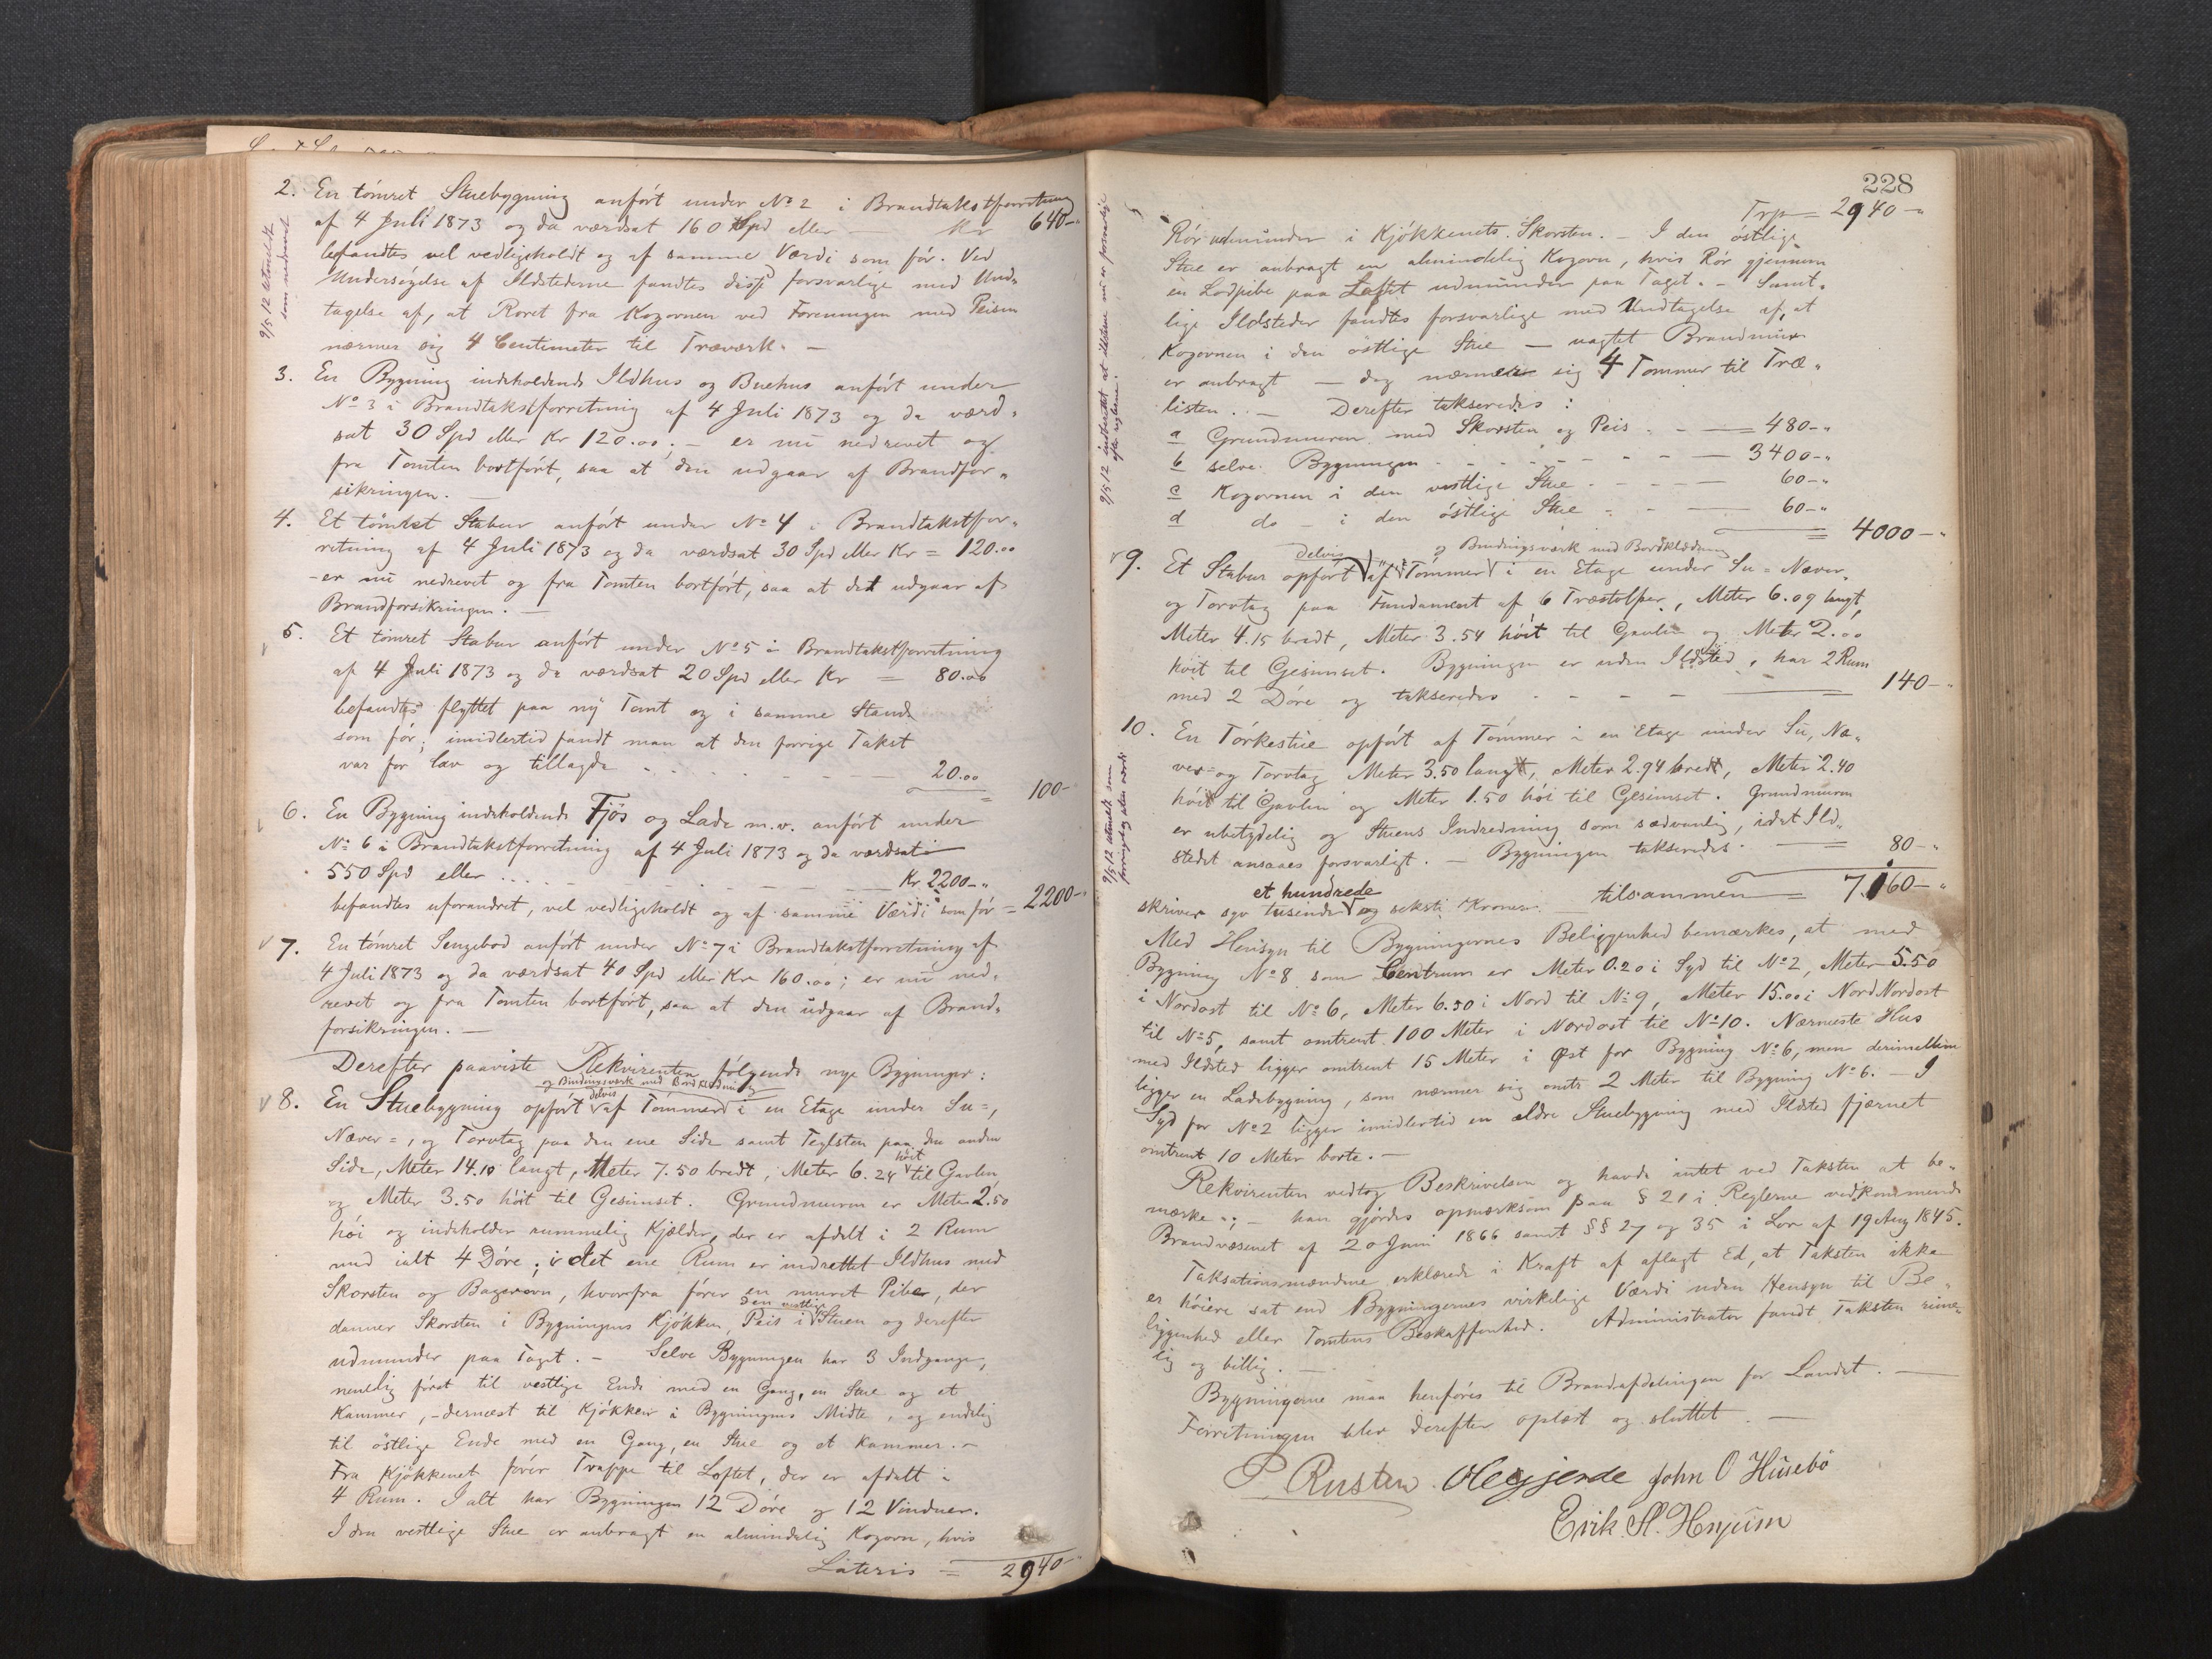 2. En tömret Stuebygning anfört under No 2 i Brandtakstforretning
af 4 Juli 1873 og da værdsat 160 Spd eller — Kr 640-"
befandtes vel vedligeholdt og af samme Værdi som för. Ved
Undersögelse af Ildstederne fandtes disse forsvarlige med Und-
tagelse af, at Röret fra Kogovnen ved Foreningen med Peisen
nærmer sig 4 Centimeter til Træværk. —
9/5 12 utmeldt
som nedrevet
3. En Bygning indeholdende Ildhus og Buehus anfört under
No 3 i Brandtakstforretning af 4 Juli 1873 og da værd-
sat 30 Spd eller Kr 120.00. — er nu nedrevet og
fra Tomten bortfört, saa at den udgaar af Brandfor-
sikringen. —
4. Et tömret Stabur anfört under No 4 i Brandtakstfor-
retning af 4 Juli 1873 og da værdsat 30 Spd eller Kr = 120.00
- er nu nedrevet og fra Tomten bortfört, saa at det udgaar af
Brandforsikringen. —
5. Et tömret Stabur anfört under No 5 i Brandtakstforretning
af 4 Juli 1873 og da værdsat 20 Spd eller Kr = 80.00
befandtes flyttet paa ny Tomt og i samme Stand
som för; imidlertid fandt man at den forrige Takst
var for lav og tillagde - - - - — 20.00
100-
6. En Bygning indeholdende Fjös og Lade m.v. anfört under
No 6 i Brandtakstforretning af 4 Juli 1873 og da værdsat
550 Spd eller . . . . - - - - — Kr 2200-"
befandtes uforandret, vel vedligeholdt og af samme Værdi som för = 2200-"
7. En tömret Sengebod anfört under No 7 i Brandtakstforretning af
4 Juli 1873 og da værdsat 40 Spd eller Kr 160.00; er nu ned-
revet og fra Tomten bortfört, saa at den udgaar af Brand-
forsikringen. —
Derefter paaviste Rekvirenten fölgende nye Bygninger:
og Bindingsværk med Bordklædning
delvis
8. En Stuebygning opfört af Tömmer i en Etage under Su=,
Næver=, og Torvtag paa den ene Side samt Teglsten paa den anden
höit
Side, Meter 14.10 langt, Meter 7.50 bredt, Meter 6.24 til Gavlen
og Meter 3.50 höit til Gesimset. Grundmuren er Meter 2.50
höi og indeholder rummelig Kjælder, der er afdelt i 2 Rum
med ialt 4 Döre; i det ene Rum er indrettet Ildhus med
Skorsten og Bagerovn, hvorfra förer en muret Pibe, der
den vestlige
danner Skorsten i Bygningens Kjökken, Peis i Stuen og derefter
udmunder paa Taget. — Selve Bygningen har 3 Indgange,
nemlig först til vestlige Ende med en Gang, en Stue og et
Kammer, - dernæst til Kjökken i Bygningens Midte, og endelig
til östlige Ende med en Gang, en Stue og et Kammer. —
Fra Kjökkenet förer Trappe til Loftet, der er afdelt i
4 Rum. Ialt har Bygningen 12 Döre og 12 Vinduer.
I den vestlige Stue er anbragt en almindelig Kogovn, hvis
Lateris = 2940-"
228
Trp = 2940-"
Rör udmunder i Kjökkenets Skorsten. — I den östlige
Stue er anbragt en almindelig Kogovn, hvis Rör gjennem
en Lodpibe paa Loftet udmunder paa Taget. — Samt-
lige Ildsteder fandtes forsvarlige med Undtagelse af, at
Kogovnen i den östlige Stue — uagtet Brandmur
er anbragt — dog nærmer sig 4 Tommer til Træ-
listen. — Derefter takseredes:
9/5 12 indberettet at ildstederne nu er forsvarlige
efter reglerne.
a Grundmuren med Skorsten og Peis - - — = 480-"
b selve Bygningen - - - - - - — 3400-"
c Kogovnen i den vestlige Stue - - - — 60-"
d do - i den östlige Stue - - — 60-"
= 4000-"
delvis og Bindingsværk med Bordklædning
9. Et Stabur opfört af Tömmer i en Etage under Su= Næver-
og Torvtag paa Fundament af 6 Træstolper, Meter 6.09 langt,
Meter 4.15 bredt, Meter 3.54 höit til Gavlen og Meter 2.00
höit til Gesimset. Bygningen er uden Ildsted, har 2 Rum
med 2 Döre og takseredes - - - - — = 140-"
10. En Törkestue opfört af Tömmer i en Etage under Su, Næ-
ver- og Torvtag Meter 3.50 lang, Meter 2.94 bred, Meter 2.40
höi til Gavlen og Meter 1.50 höi til Gesimset. Grundmuren
er ubetydelig og Stuens Indredning som sædvanlig, idet Ild-
stedet ansaaes forsvarligt. — Bygningen takseredes - — = 80-"
9/5 12 utmeldt som
forringet og uten værdi
et hundrede
tilsammen = 7.160-"
skriver syv tusinde og seksti Kroner. —
Med Hensyn til Bygningernes Beliggenhed bemærkes, at med
Bygning No 8 som Centrum er Meter 0.20 i Syd til No 2, Meter 5.50
i Nordost til No 6, Meter 6.50 i Nord til No 9, Meter 15.00 i NordNordost
til No 5, samt omtrent 100 Meter i Nordost til No 10. Nærmeste Hus
med Ildsted ligger omtrent 15 Meter i Øst for Bygning No 6, men derimellem
ligger en Ladebygning, som nærmer sig omtr 2 Meter til Bygning No 6. — I
Syd for No 2 ligger imidlertid en ældre Stuebygning med Ildsted fjærnet
omtrent 10 Meter borte. —
Rekvirenten vedtog Beskrivelsen og havde intet ved Taksten at be-
mærke; — han gjördes opmærksom paa § 21 i Reglerne vedkommende
Brandvæsenet af 20 Juni 1866 samt §§ 27 og 35 i Lov af 19 Aug 1845.
Taksationsmændene erklærede i Kraft af aflagt Ed, at Taksten ikke
er höiere sat end Bygningernes virkelige Værdi uden Hensyn til Be-
liggenhed eller Tomtens Beskaffenhed. Administrator fandt Taksten rime-
lig og billig. —
Bygningerne maa henföres til Brandafdelingen for Landet. —
Forretningen blev derefter oplæst og sluttet. —
P Rusten. John O Husebö
Erik Henjum